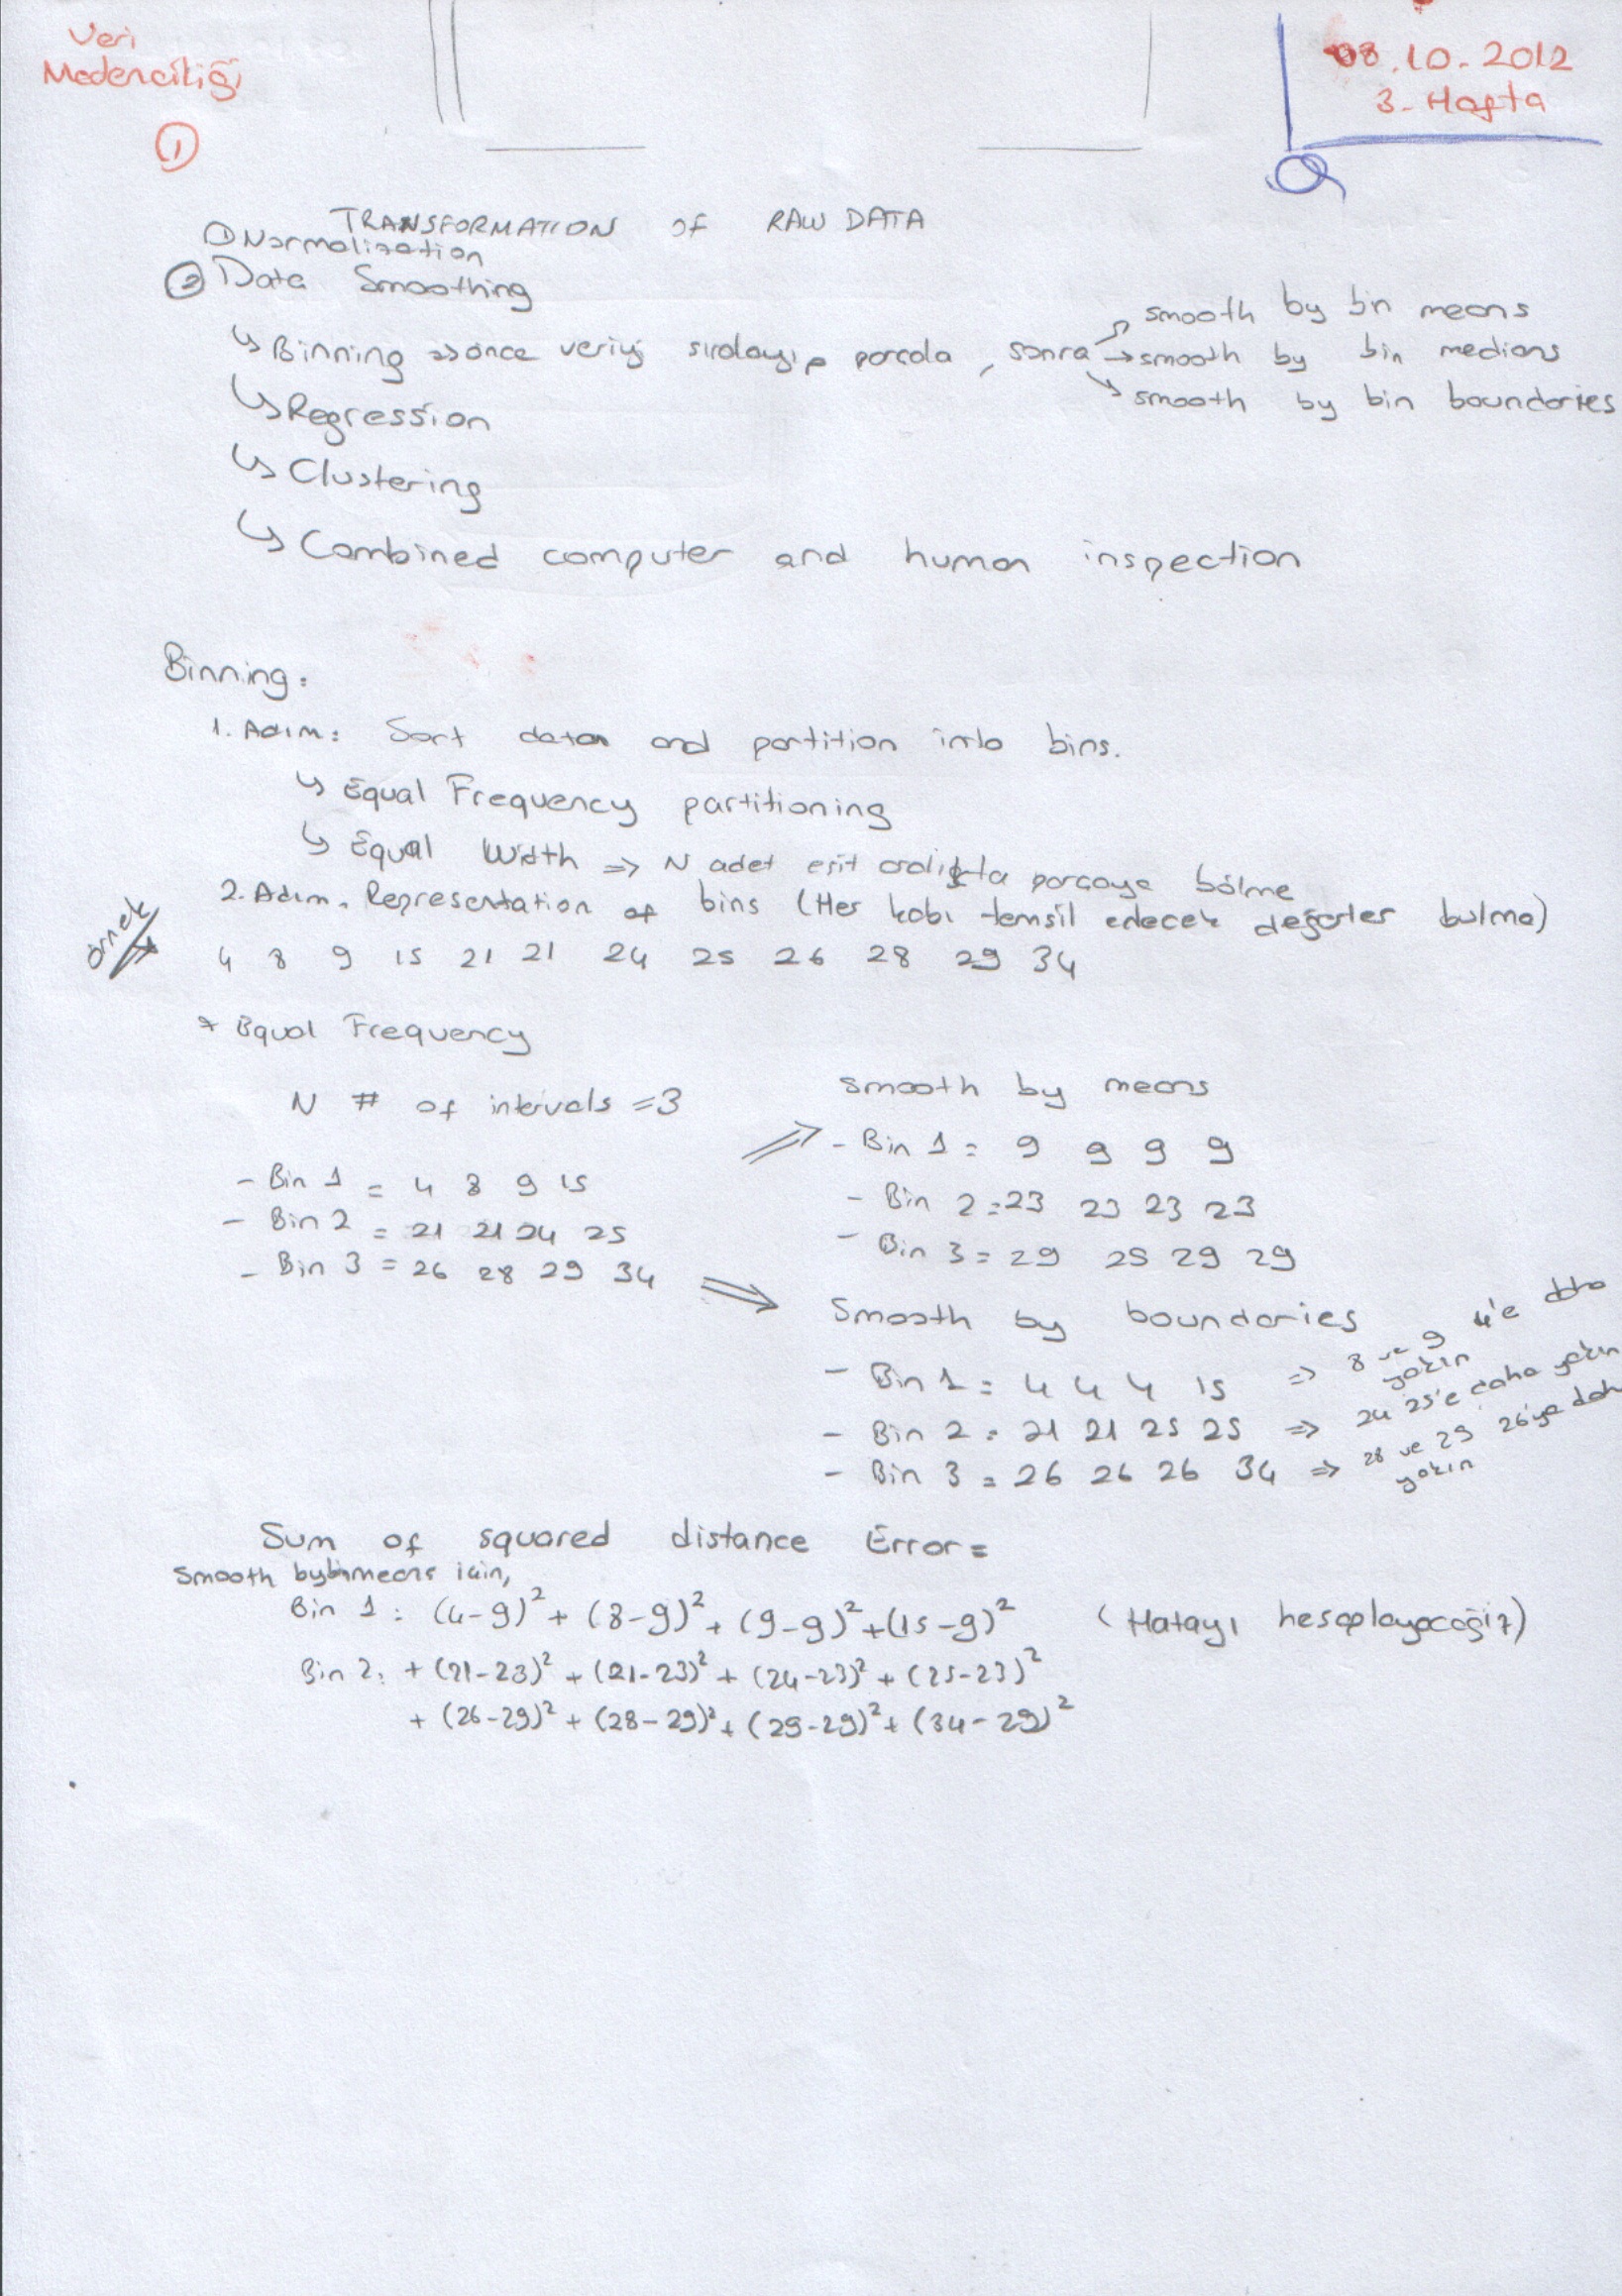 Veri
Madenciliği
1
08.10.2012
3. Hafta
TRANSFORMATION of RAW DATA
① Normalization
② Data Smoothing
↳ Binning => önce veriyi sıralayıp parçala, sonra → smooth by bin means
→ smooth by bin medians
→ smooth by bin boundaries
↳ Regression
↳ Clustering
↳ Combined computer and human inspection
Binning:
1. Adım: Sort data and partition into bins.
↳ Equal Frequency partitioning
↳ Equal Width => N adet eşit aralıkta parçaya bölme
2. Adım. Representation of bins (Her kabı temsil edecek değerler bulma)
örnek
4 8 9 15 21 21 24 25 26 28 29 34
* Equal Frequency
N # of intervals = 3
- Bin 1 = 4 8 9 15
- Bin 2 = 21 21 24 25
- Bin 3 = 26 28 29 34
Smooth by means
- Bin 1 = 9 9 9 9
- Bin 2 = 23 23 23 23
- Bin 3 = 29 29 29 29
Smooth by boundaries
- Bin 1 = 4 4 4 15 => 8 ve 9 4'e daha yakın
- Bin 2 = 21 21 25 25 => 24 25'e daha yakın
- Bin 3 = 26 26 26 34 => 28 ve 29 26'ya daha yakın
Sum of squared distance Error =
Smooth by bin means için,
Bin 1 : (4-9)² + (8-9)² + (9-9)² + (15-9)² (Hatayı hesaplayacağız)
Bin 2: + (21-23)² + (21-23)² + (24-23)² + (25-23)²
+ (26-29)² + (28-29)² + (29-29)² + (34-29)²